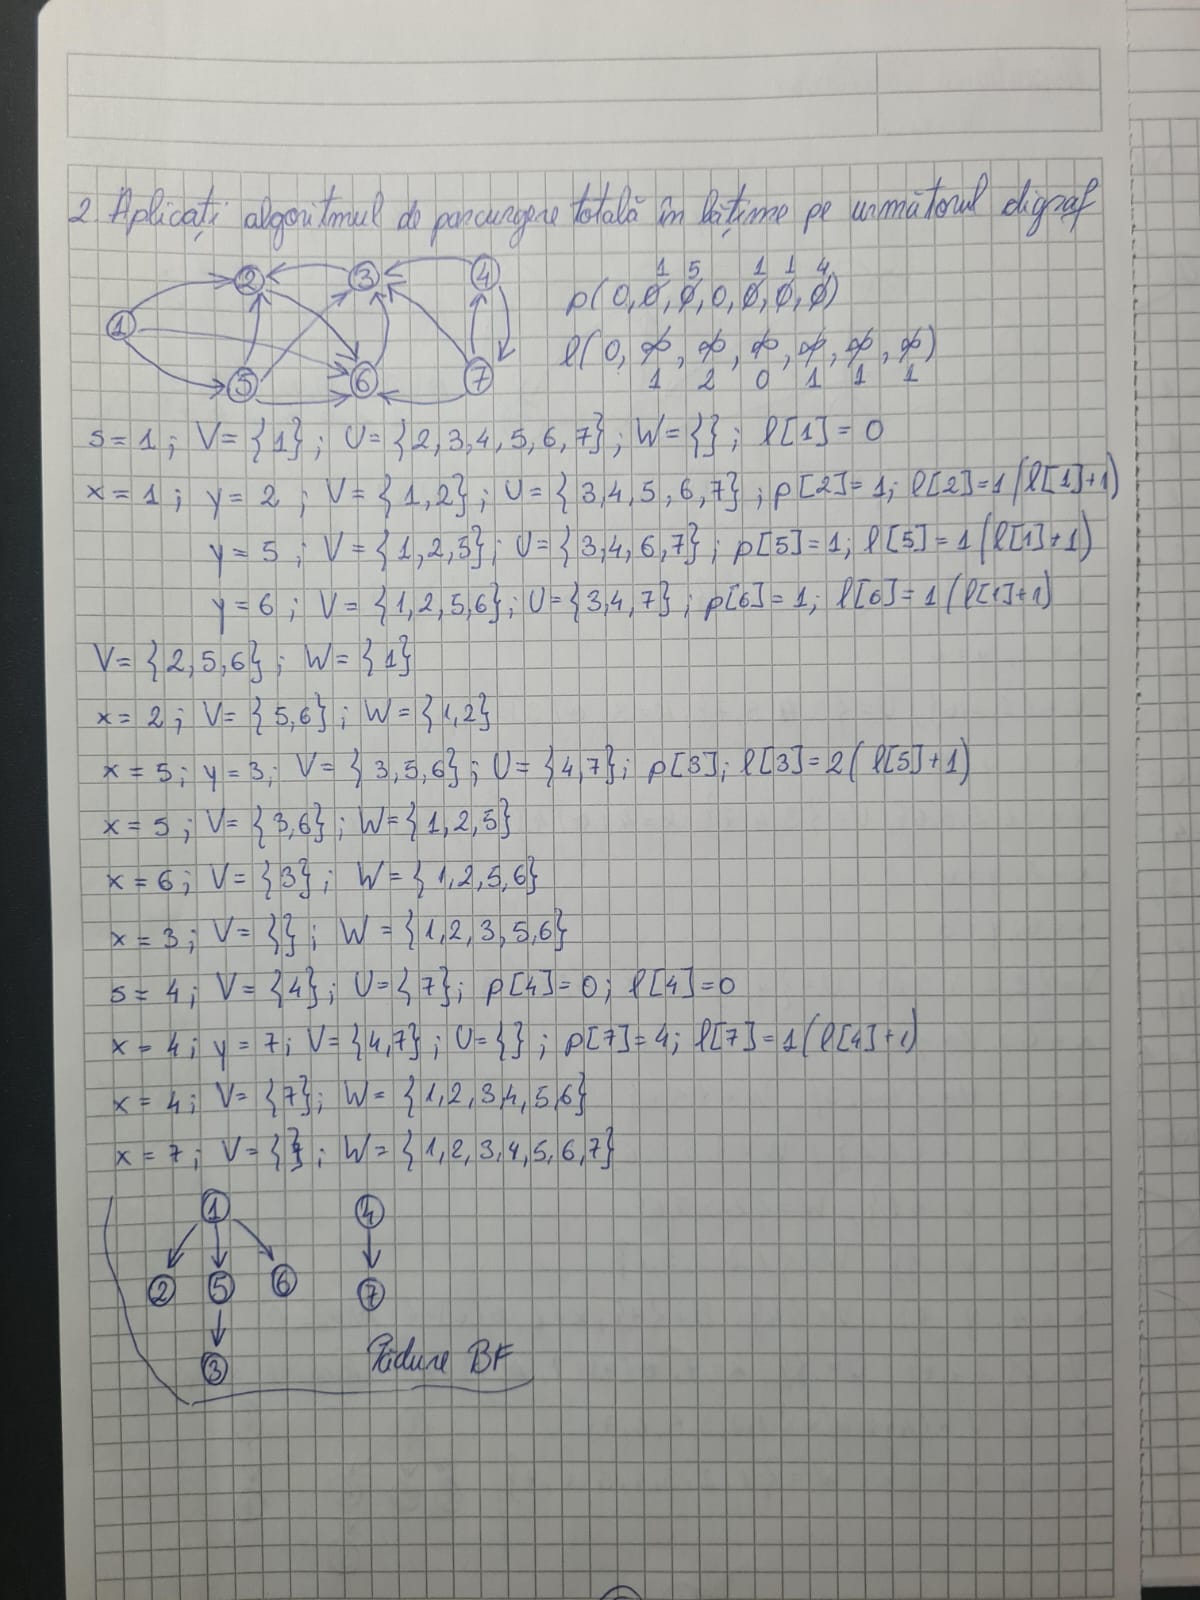 2. Aplicați algoritmul de parcurgere totală în lățime pe următorul digraf
1 2 3 4 5 6 7
1 5 1 1 4
p(0,0,0,0,0,0,0)
l(0,∞,∞,∞,∞,∞,∞)
1 2 0 1 1 1
s=1; V={1}; U={2,3,4,5,6,7}; W={}; l[1]=0
x=1; y=2; V={1,2}; U={3,4,5,6,7}; p[2]=1; l[2]=1(l[1]+1)
y=5; V={1,2,5}; U={3,4,6,7}; p[5]=1; l[5]=1(l[1]+1)
y=6; V={1,2,5,6}; U={3,4,7}; p[6]=1; l[6]=1(l[1]+1)
V={2,5,6}; W={1}
x=2; V={5,6}; W={1,2}
x=5; y=3; V={3,5,6}; U={4,7}; p[3]; l[3]=2(l[5]+1)
x=5; V={3,6}; W={1,2,5}
x=6; V={3}; W={1,2,5,6}
x=3; V={}; W={1,2,3,5,6}
s=4; V={4}; U={7}; p[4]=0; l[4]=0
x=4; y=7; V={4,7}; U={}; p[7]=4; l[7]=1(l[4]+1)
x=4; V={7}; W={1,2,3,4,5,6}
x=7; V={}; W={1,2,3,4,5,6,7}
1 4
2 5 6 7
3 Pădure BF